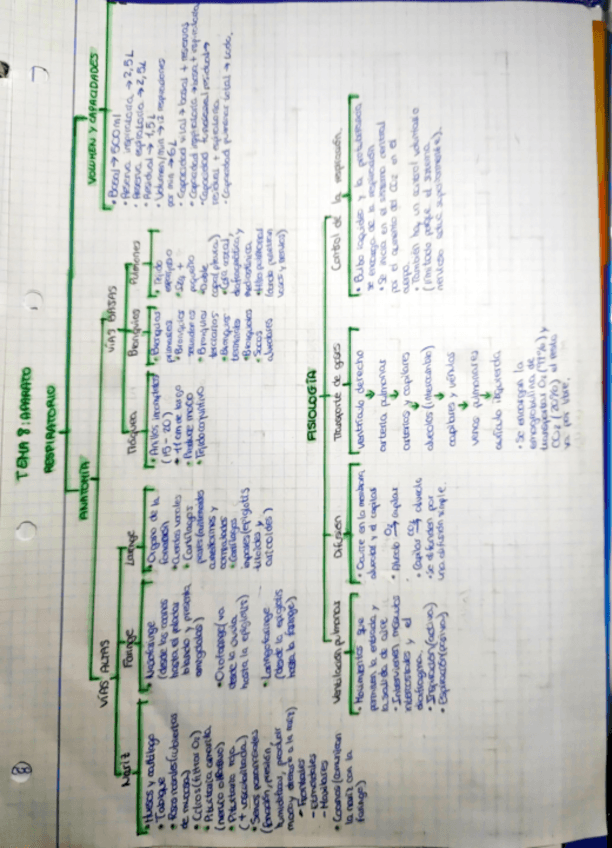 8
TEMA 8: APARATO
RESPIRATORIO
ANATOMÍA
VOLUMEN Y CAPACIDADES
VÍAS ALTAS
VÍAS BAJAS
Nariz
• Huesos y cartílago
• Tabique
• Fosas nasales (cubiertas
de mucosa)
• Cilios (filtran O2)
• Pituitaria amarilla
(nervio olfativo)
• Pituitaria roja
(+ vascularizada)
• Senos paranasales
- Frontales
- Etmoidales
- Maxilares
• Coanas (comunican
la nariz con la
faringe)
Faringe
• Nasofaringe
(desde las coanas
hasta el paladar
blando y presenta
amígdalas)
• Orofaringe (va
desde la úvula
hasta la epiglotis)
• Laringofaringe
(desde la epiglotis
hasta la laringe)
Laringe
• Órgano de la
fonación
• Cuerdas vocales
• Cartílagos
pares (aritenoides
cuneiformes y
corniculados
• Cartílagos
impares (epiglotis
tiroides y
cricoides)
Tráquea
• Anillos incompletos
(15 - 20)
• 11 cm de largo
• Produce moco
• Tejido conjuntivo
Bronquios
• Bronquios
primarios
• Bronquios
secundarios
• Bronquios
terciarios
• Bronquiolos
• Sacos
alveolares
Pulmones
• Tejido
esponjoso
• Izq +
pequeño
• Doble
capa (pleura)
• Cara costal,
diafragmática y
mediastínica
• Hilio pulmonar
(donde penetran
vasos y nervios)
• Basal → 500 ml
• Reserva inspiratoria → 2,5 L
• Reserva espiratoria → 2,5 L
• Residual → 1,5 L
• Volumen/min → 12 respiraciones
por min → 6 L
• Capacidad vital → basal + reservas
• Capacidad inspiratoria → basal + inspiratoria
• Capacidad funcional residual →
residual + espiratoria
• Capacidad pulmonar total → todo.
FISIOLOGÍA
Ventilación pulmonar
• Movimientos que
permiten la entrada y
la salida de aire
• Intervienen músculos
intercostales y el
diafragma.
• Inspiración (activo)
• Espiración (pasivo)
Difusión
• Ocurre en la membrana
alveolar y el capilar
• Alveolo O2 → capilar
• Capilar CO2 → alveolo
• Se difunden por
una difusión simple.
Transporte de gases
ventrículo derecho
arteria pulmonar
arteriolas y capilares
alveolos (intercambio)
capilares y vénulas
venas pulmonares
aurícula izquierda
• Se encargan la
hemoglobina de
transportar O2 (97%) y
CO2 (20%) el resto
va por libre.
Control de la respiración
• Bulbo raquídeo y la protuberancia
se encarga de la respiración
• Se inicia en el sistema central
por el aumento de CO2 en el
cuerpo
• También hay un control voluntario
(limitado porque el sistema
nervioso actúa superiormente).